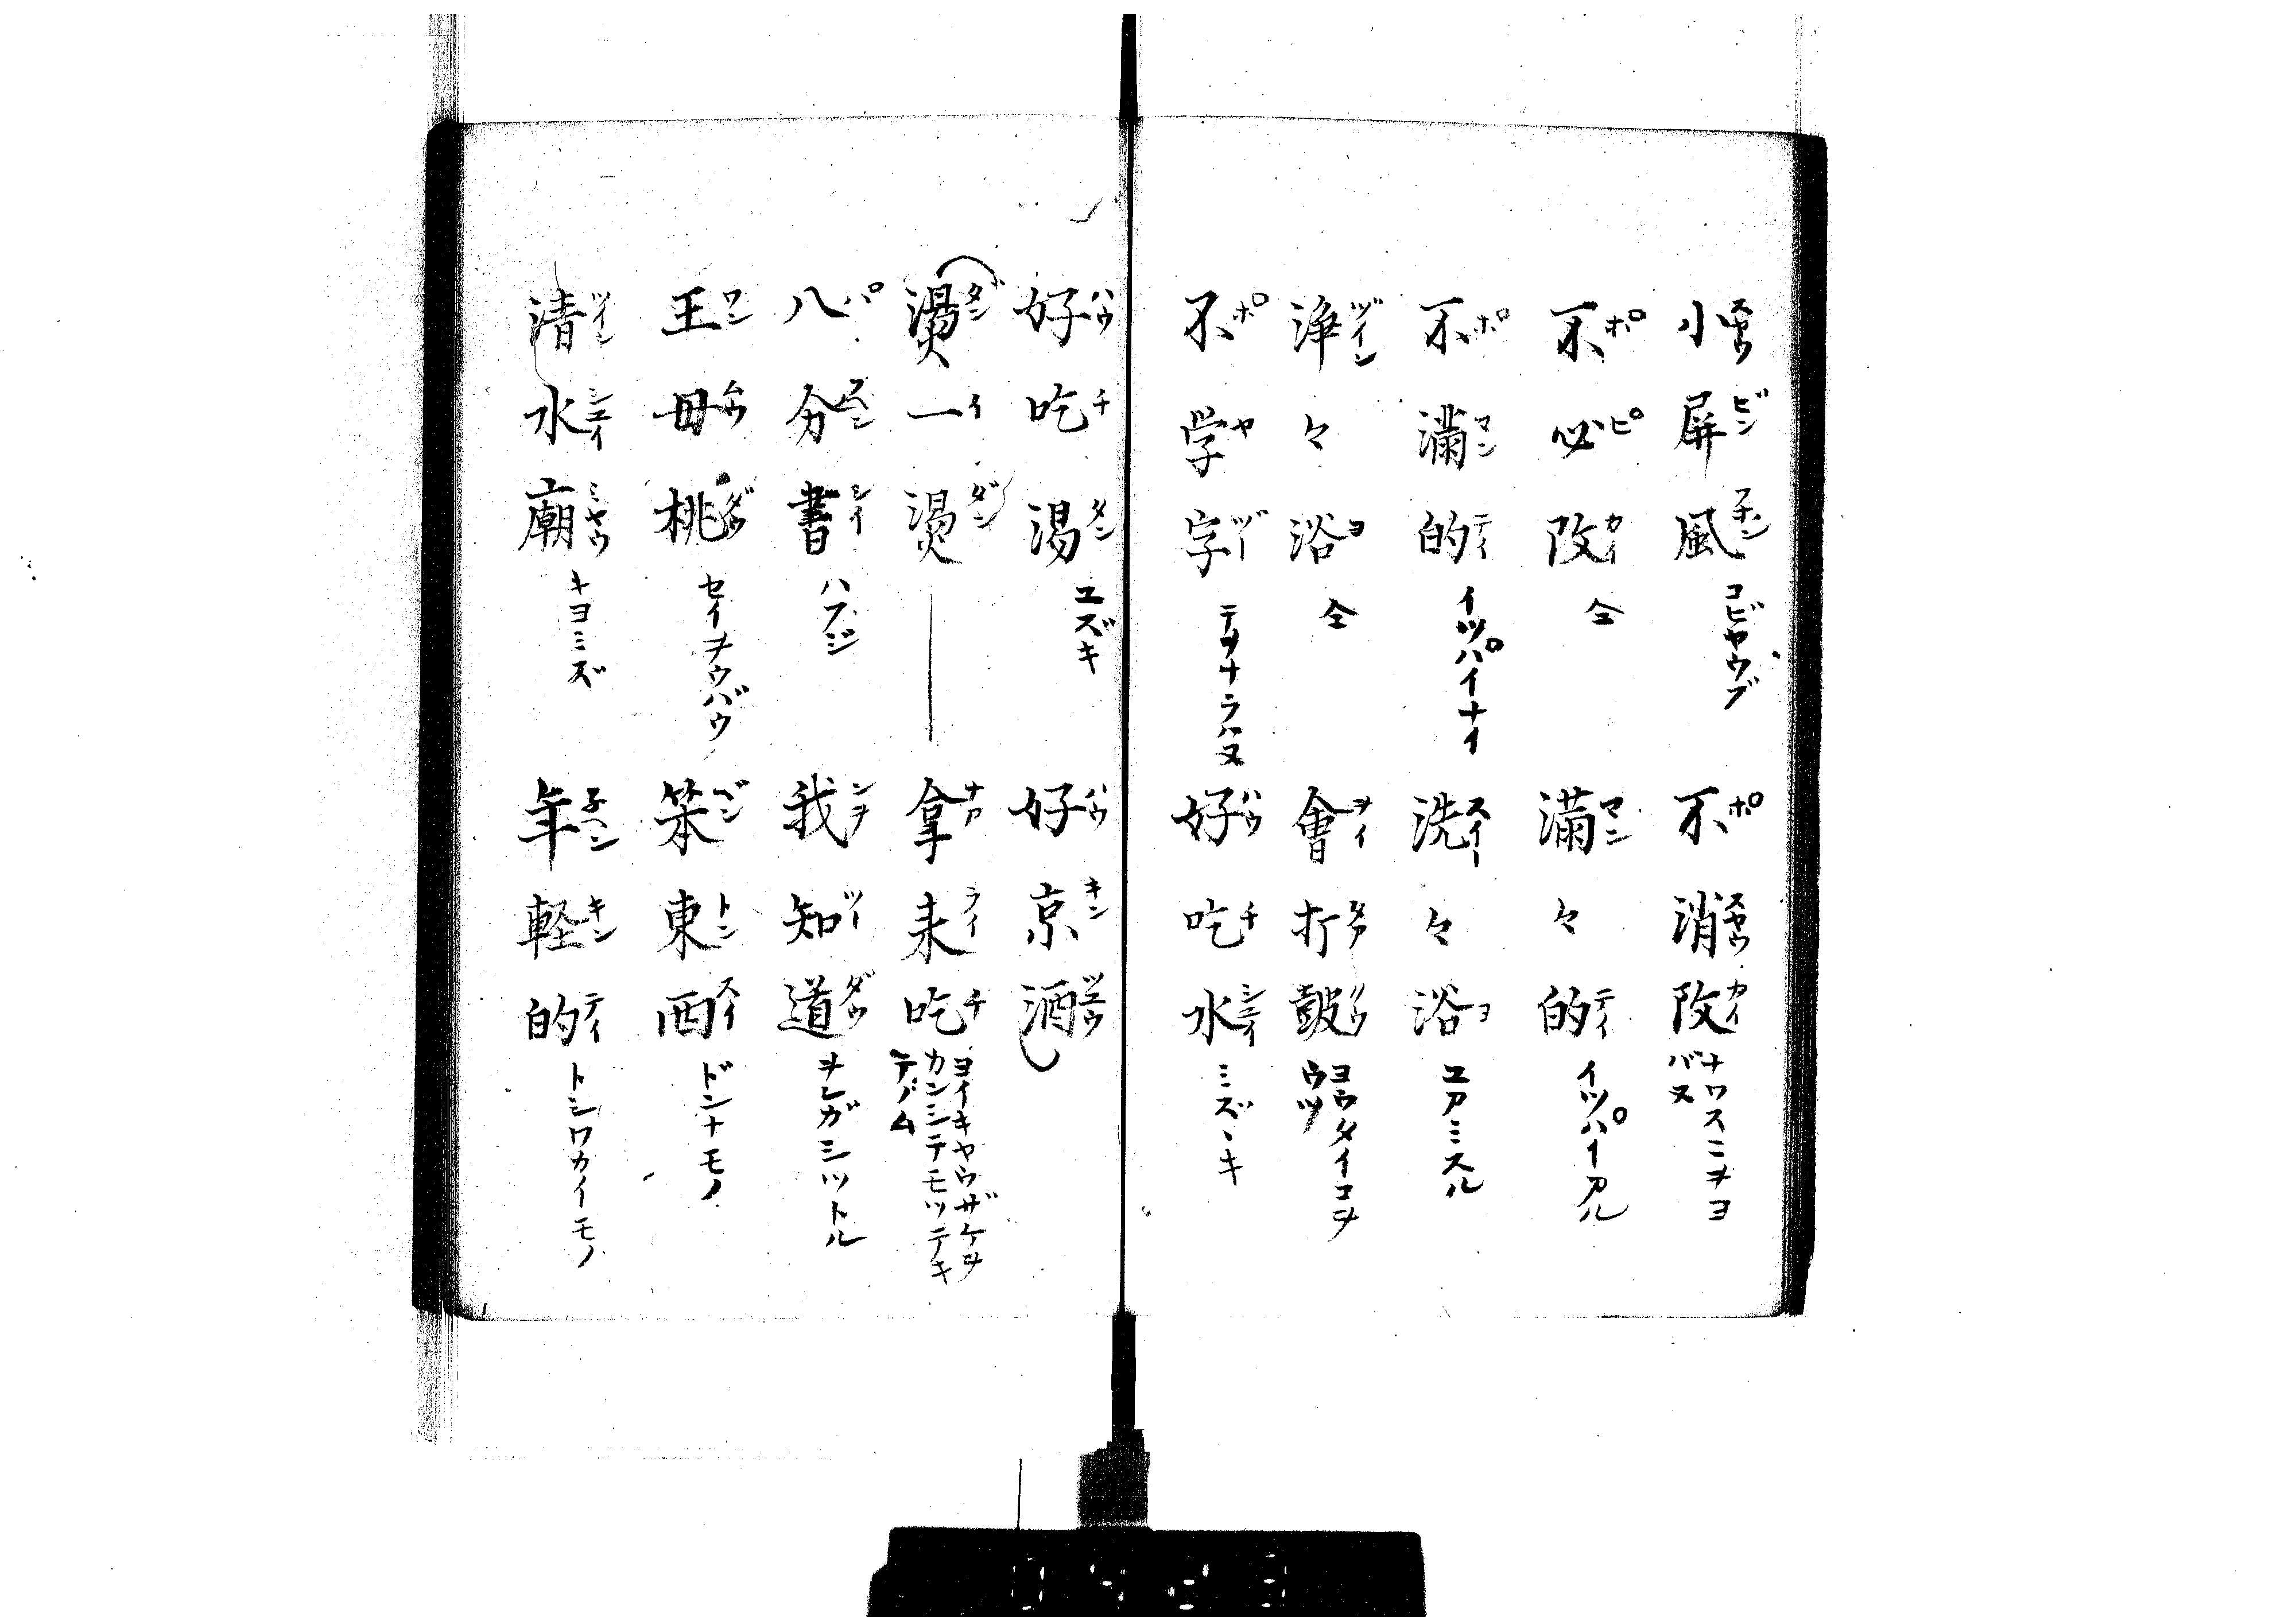 小屏風 コビヤウブ 不消改 ナワスニヲヨバヌ
不必改 仝 満々的 イツパイアル
不満的 イツパイナイ 洗々浴 ユアミスル
淨々浴 仝 會打皷 ヨウタイコヲウツ
不学字 テヲナラハヌ 好吃水 ミズヽキ
好吃湯 ユズキ 好京酒
燙一燙 拿来吃 ヨイキヤウザケヲカンシテモツテキテノム
八分書 ハフジ 我知道 ヲレガシツトル
王母桃 セイヲウバウ 笨東西 ドンナモノ
清水廟 キヨミズ 年軽的 トシワカイモノ